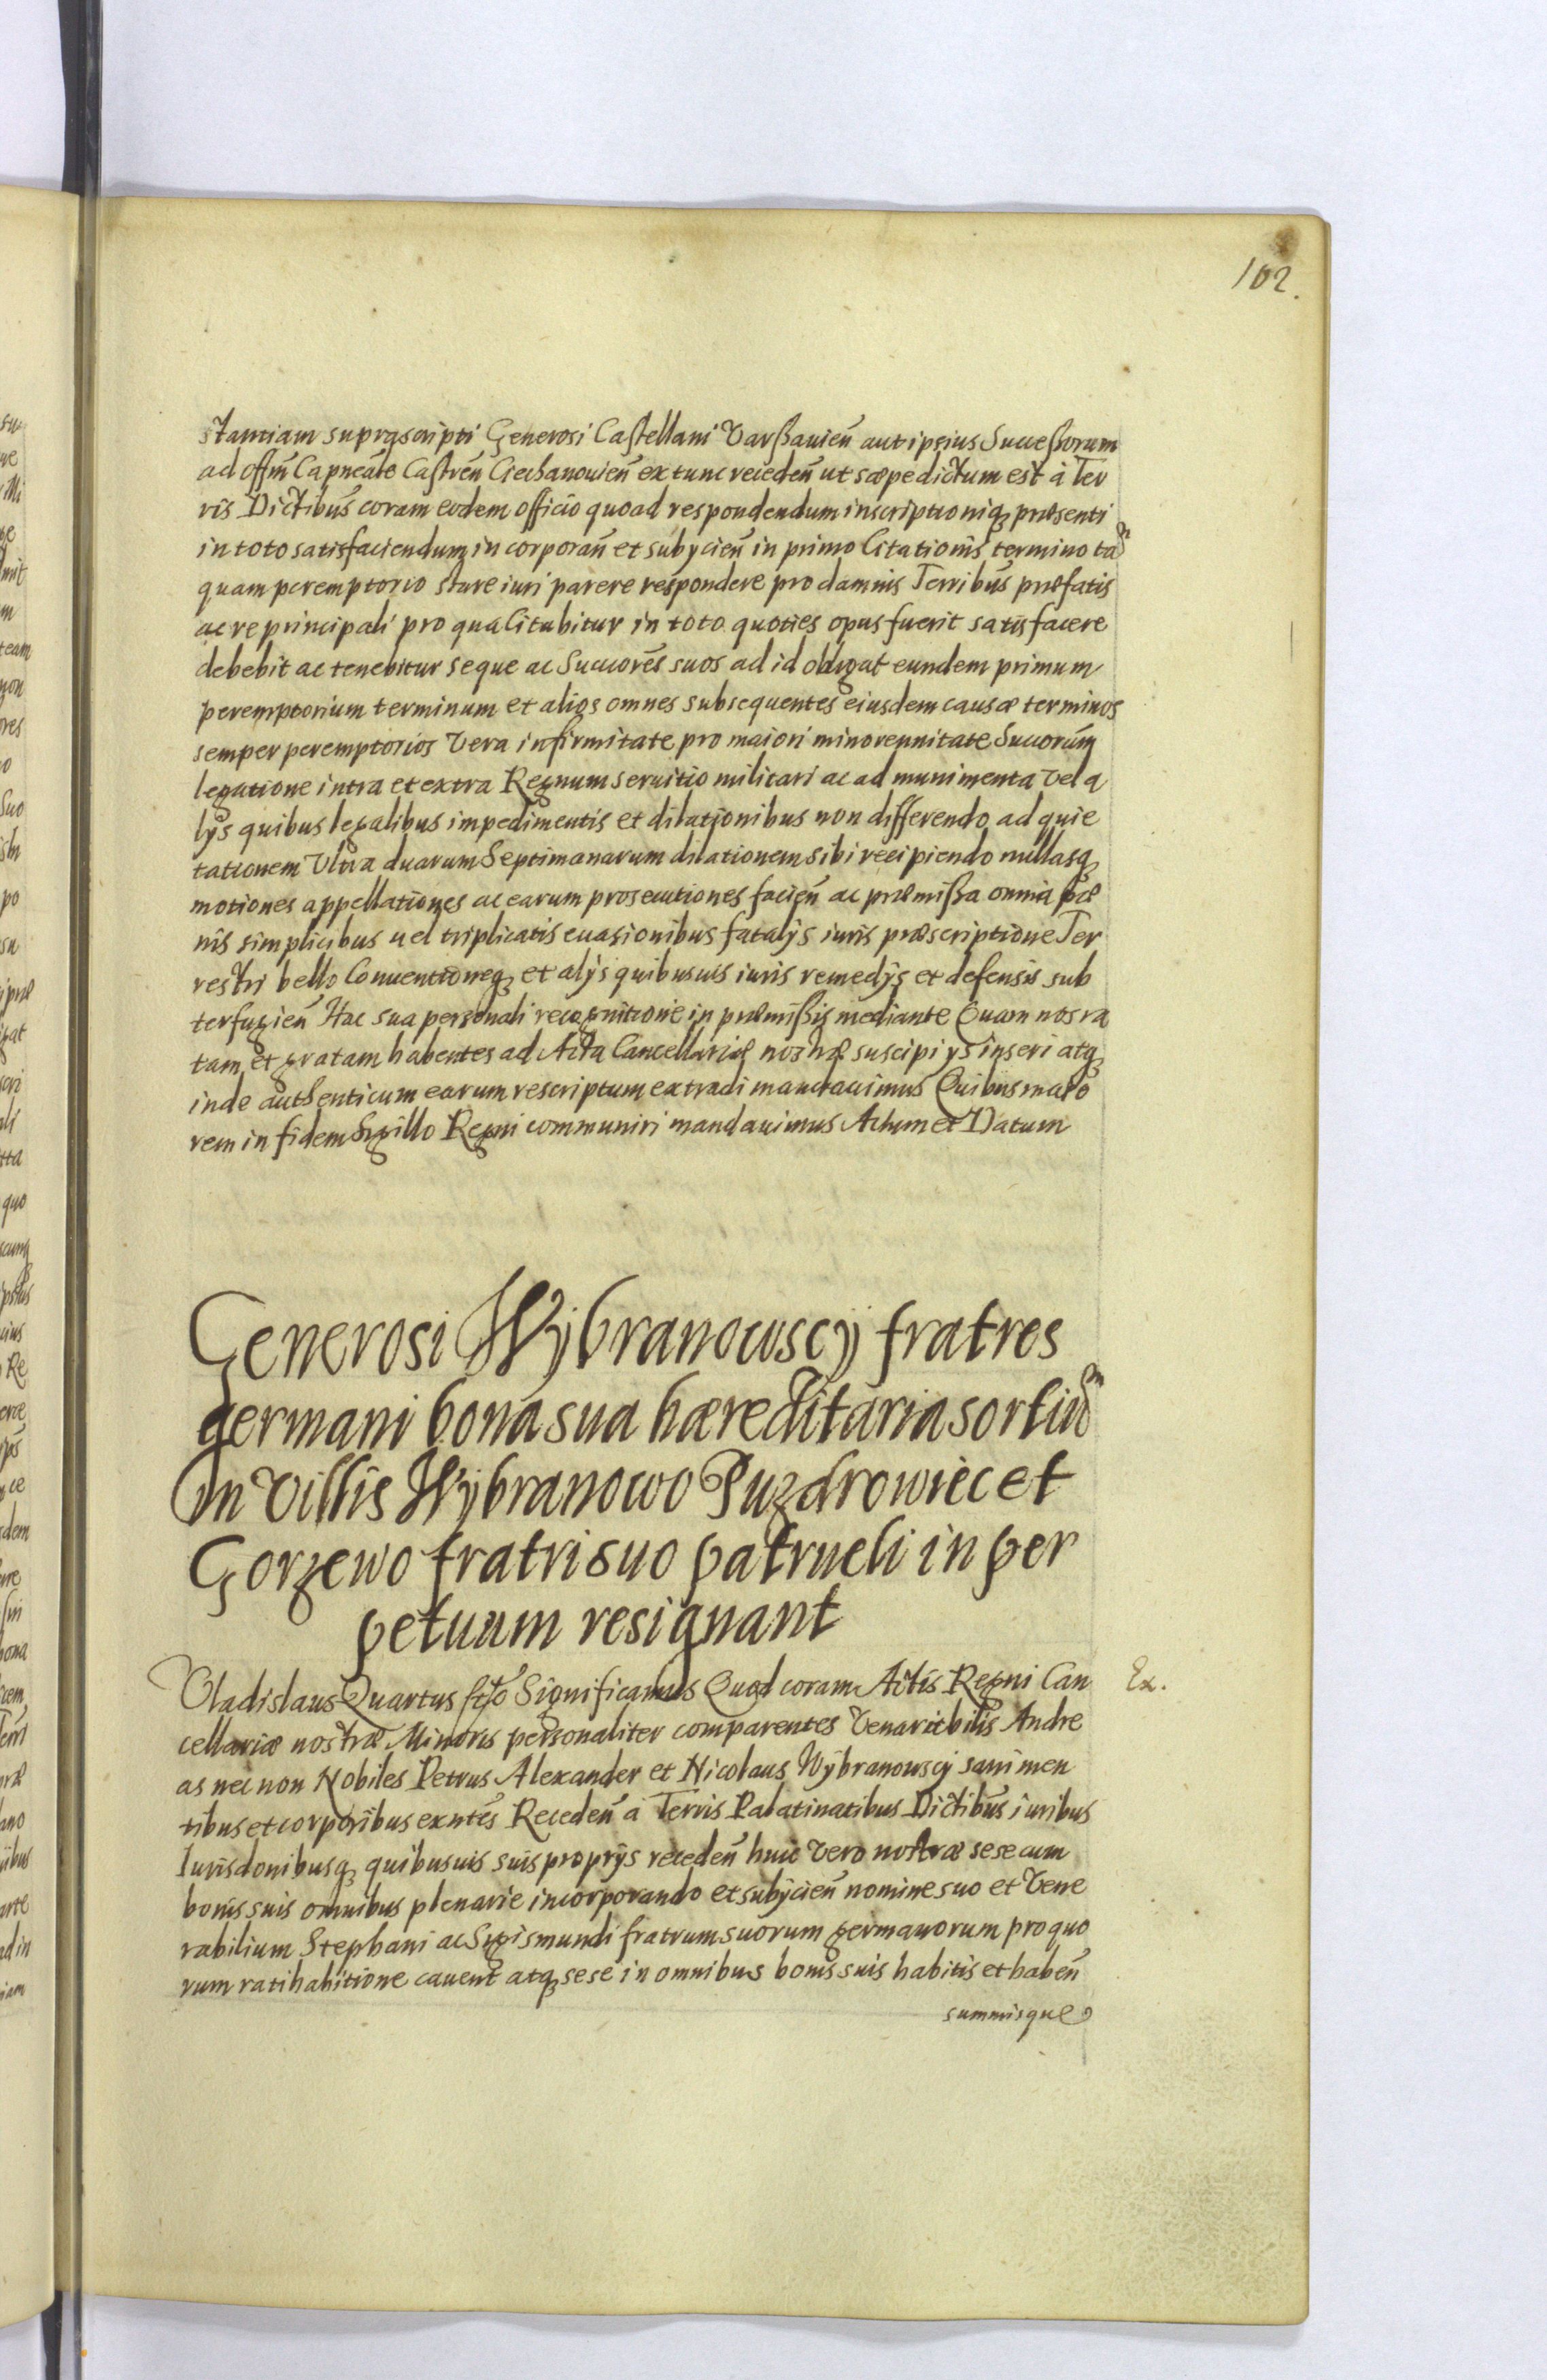 102.
stantiam suprascripti Generosi Castellani Varßauień aut ipsius Succeßorum
ad offm̃ Capneále Castreń Ciechanouień ex tunc recedeń ut sæpe dictum est à Ter
ris Dictibus̃ coram eodem officio quoad respondendum inscriptioniq3 præsenti
in toto satisfaciendum incorporań et subycień in primo Citationis termino tã
quam peremptorio stare iuri parere respondere pro damnis Terribus̃ præfatis
ac re principali pro qua Citabitur in toto quoties opus fuerit satisfacere
debebit ac tenebitur seque ac Succorẽs suos ad id obligat eundem primum
peremptorium terminum et alios omnes subsequentes eiusdem causæ terminos
semper peremptorios Vera infirmitate pro maiori minorennitate Succorum̃
legatione intra et extra Regnum seruitio militari ac ad munimenta Vel a
lys quibus legalibus impedimentis et dilationibus non differendo ad quie
tationem Ultra duarum Septimanarum dilationem sibi recipiendo nullasq3
motiones appellationes ac earum prosecutiones facień ac præmißa omnia pæ
nis simplicibus uel triplicatis euasionibus fatalys iuris præscriptione Ter
restri bello Conuentioneq3 et alys quibusuis iuris remedys et defensis sub
terfugień Hac sua personali recognitione in præmißis mediante Quam nos ra
tam et gratam habentes ad Acta Cancellariæ nostræ suscipi ys inseri atq3
inde authenticum earum rescriptum extradi mandauimus Quibus in maio
rem in fidem Sigillo Regni communiri mandauimus Actum et Datum
Generosi Wybranowscy fratres
germani bona sua hæreditaria sortiũ
in Villis Wybranowo Puzdrowiec et
Gorzewo fratri suo patrueli in per
petuum resignant
Vladislaus Quartus Significamus Quod coram Actis Regni Can
Ex.
cellariæ nostræ Minoris personaliter comparentes Venarabilis Andre
as nec non Nobiles Petrus Alexander et Nicolaus Wybranowscy sani men
tibus et corporibus exntẽs Recedeń a Terris Palatinatibus Dictibus̃ iuribus
Iurisdonibusq3 quibusuis suis proprys recedeń huic Vero nostræ sese cum
bonis suis omnibus plenarie incorporando et subycień nomine suo et Vene
rabilium Stephani ac Sigismundi fratrum suorum germanorum pro quo
rum ratihabitione cauent atq3 sese in omnibus bonis suis habitis et habeń
summisque